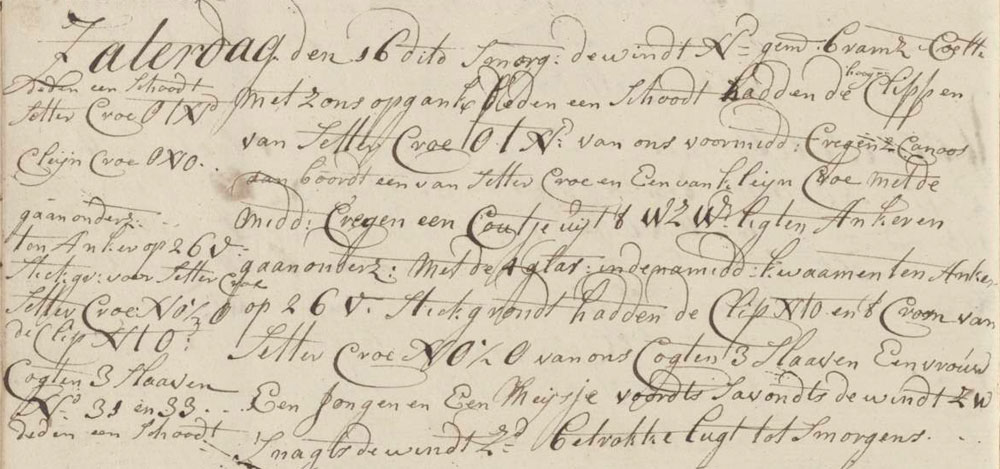 Zaterdag den 16 dito Smorg: de windt N= gem: bramz Coelte
deden een Schoodt
Setter Croe OtNd
Cleijn Croe ONO.
met Zons opgank deden een Schoodt hadden de hooge Clippen
van Setter Croe OtNd van ons voormidd: Cregen 2 Canoos
aan boordt een van Setter Croe en Een van kleijn Croe met de
midd: Cregen een Coutje uijt 't WZW: ligten Ankeren
gaan onderz: ...
ten Anker op 26 v:
Stekgr: voor Setter Croe
gaan onderz: met de 4 glas: in de namidd: kwaamen ten Anker
Setter Croe: NO½O
de Clip NtO:
op 26 v. Steekgrondt hadden de Clip NtO en 't Croon van
Setter Croe NO½O van ons Cogten 3 Slaaven Een vrouw
Cogten 3 Slaaven
No. 31 en 33...
deden een Schoodt
Een Jongen en Een Meijsje voordts Savondts de windt ZW
Snagts de windt Zd betrokke lugt tot Smorgens.